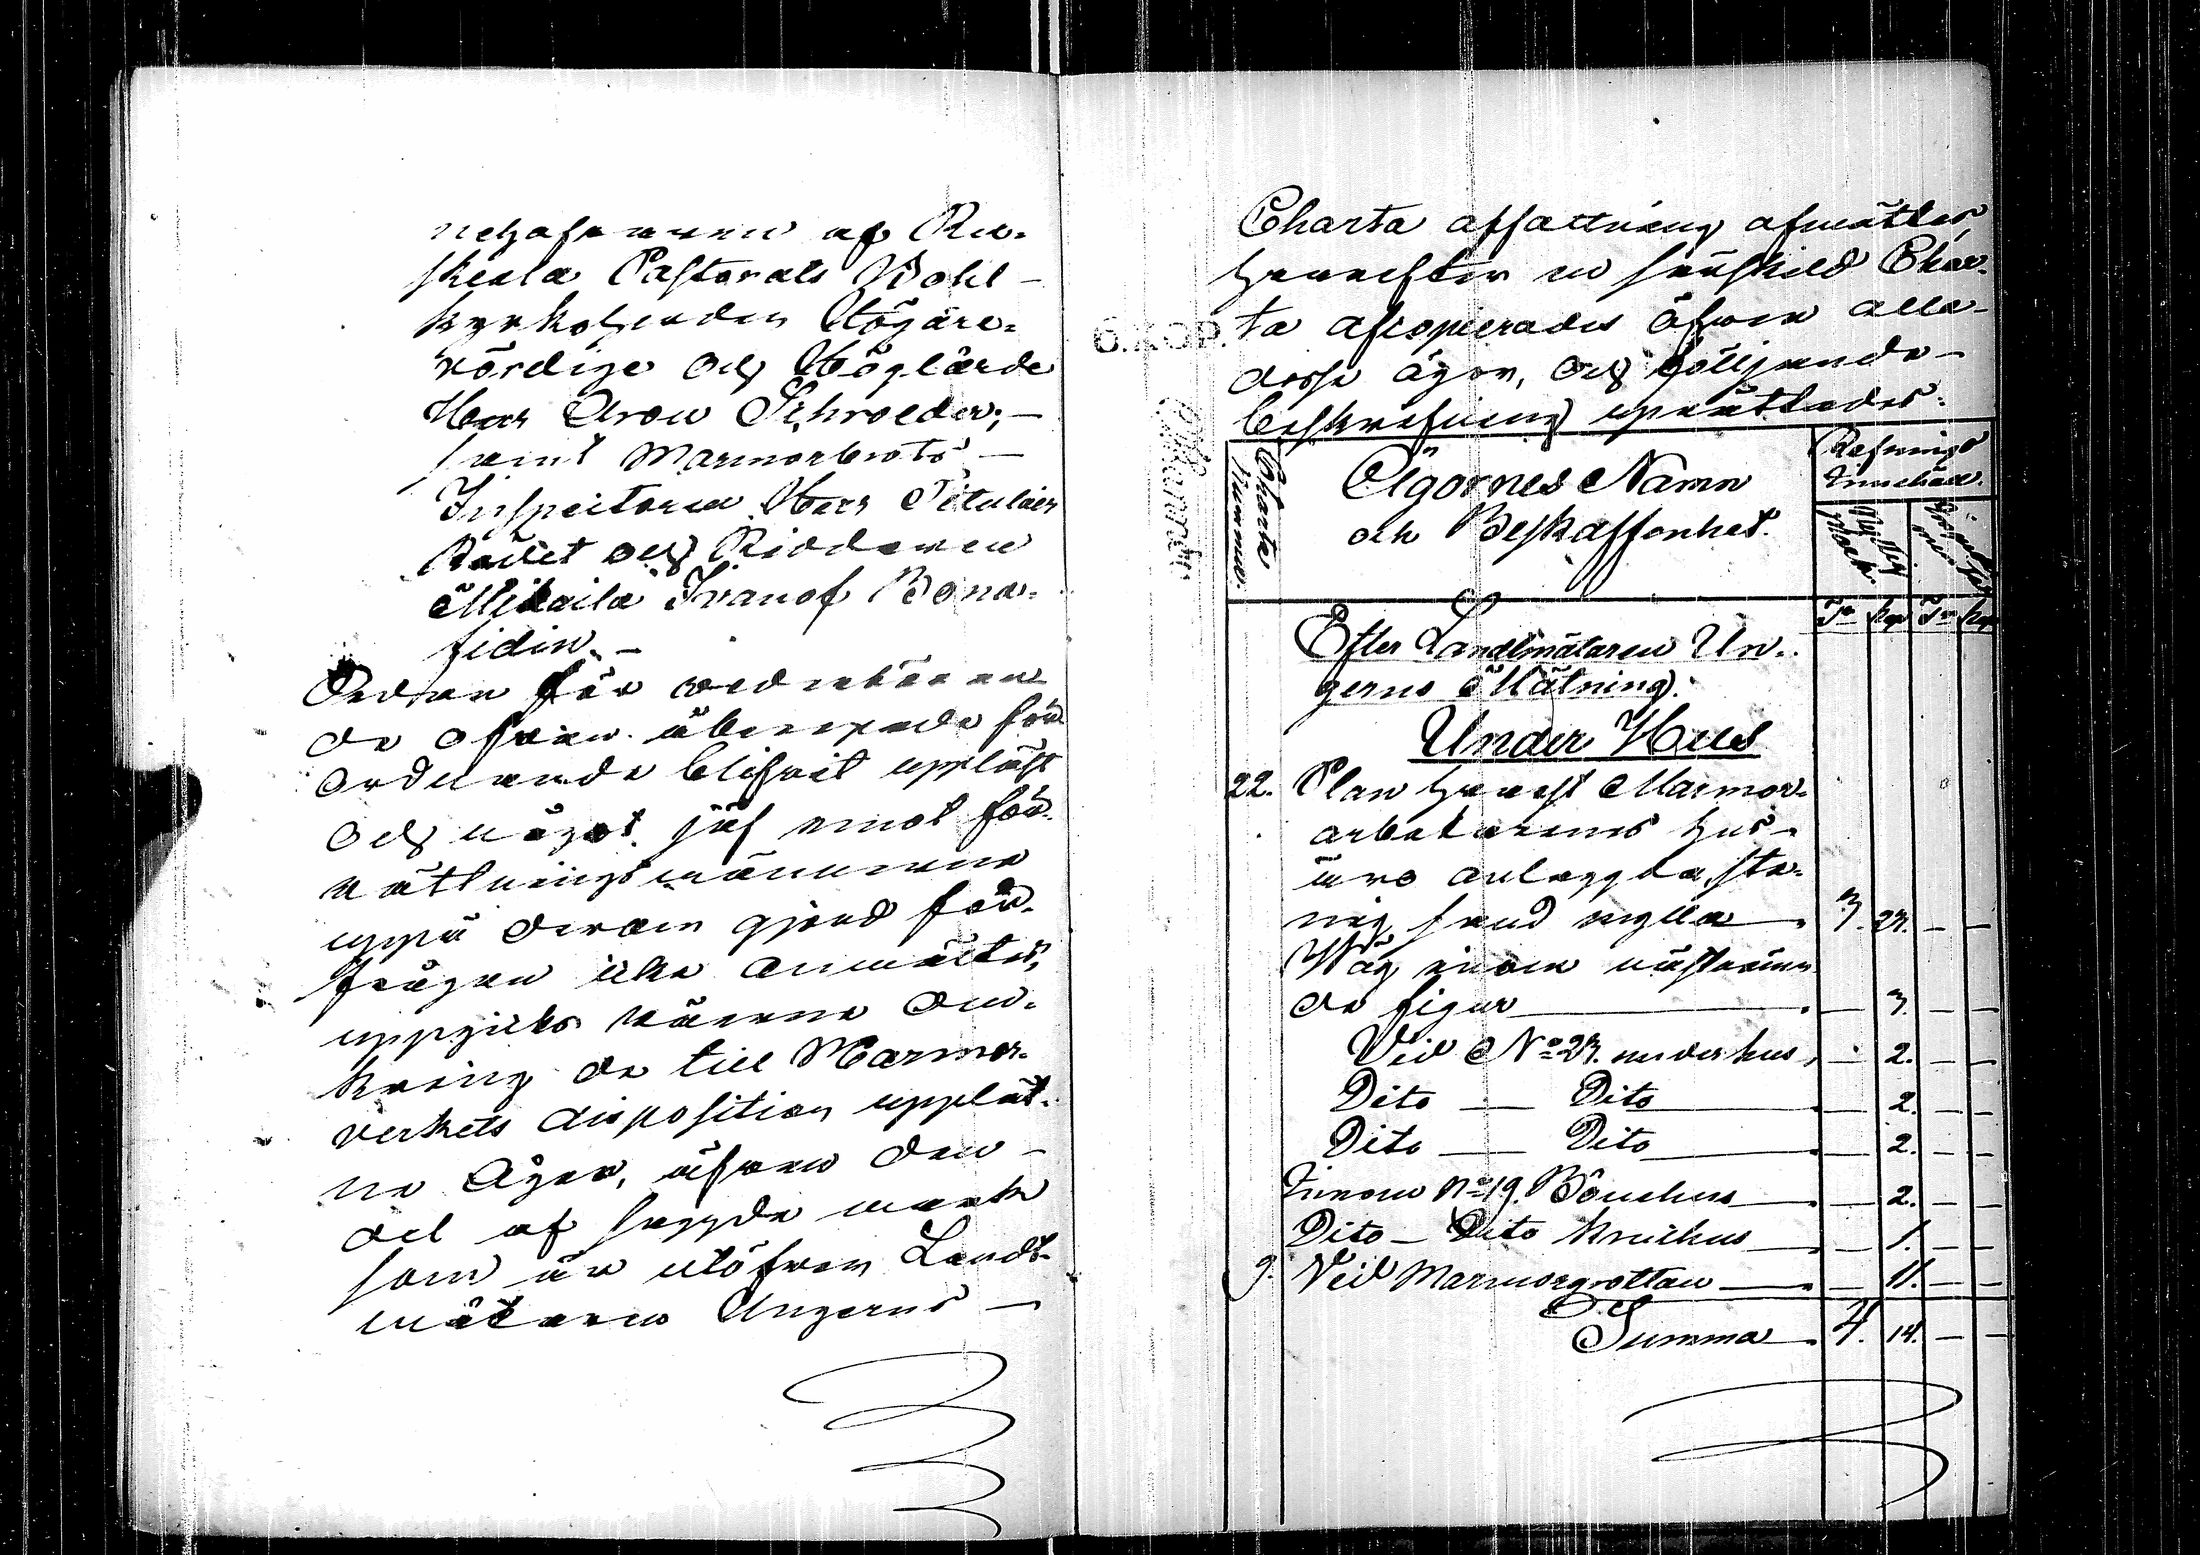 nehafwaren af Ru-
skeala Pastorats Wohl-
kyrkoherden Högäre-
vördige och Höglärde
Herr Aron Schroeder;-
samt Marmorbrots-
Inspectoren Herr Titulair
Rådet och Riddaren
Mikaila Ivanof Bona-
fidin.-
Sedan för vederböran
de ofvan åberopade för
ordnande blifvit uppläst
och något jäf emot för-
rättningsmännerne
uppå derom gjord för-
frågan icke anmältes,
uppgicks råerne om-
kring de till Marmor-
verkets disposition upplåt-
ne Ägor, äfven den-
del af sagde mark
som är utöfver Landt-
mätaren Ungerns-
Charta affattning afmättes,
hvarefter en särskild Char-
ta afcopierades öfver alla-
dessa ägor, och följande-
beskrifning upprättades.
6.KOP.
Charta Nummer.
Ägornes Namn
och Beskaffenhet.
Refnings
Innehåll.
Tr Kap Tr Kap
Efter Landtmätaren Un-
gerns Mätning.
Under Hus
22. Plan hvarest Marmor-
arbetarenes hus-
äro anlagda, ste-
nig sand mylla 3. 23. - -
Wäg inom nästnämn-
de figur - 3. - -
Vid No 23. under hus - 2. - -
Dito - Dito - 2. - -
Dito - Dito - 2. - -
Innom No 19. Bönehus - 2. - -
Dito - Dito Kruthus - 1. - -
9. Vid Marmorgrottan - 11. - -
Summa 4. 14. - -